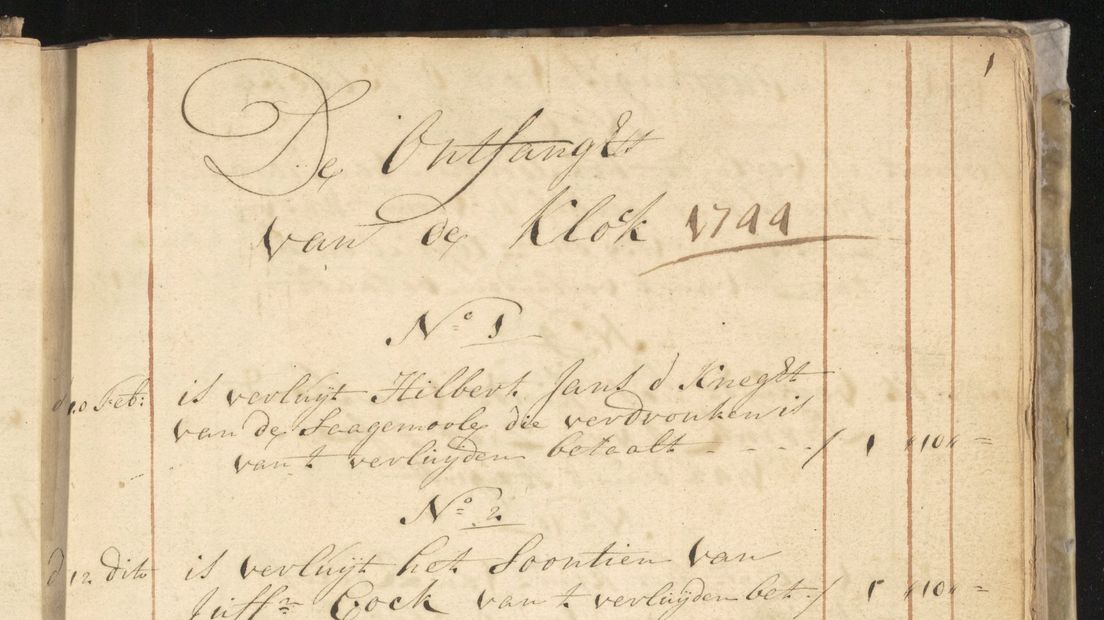 1
De Ontfangst
van de Klok 1744
No 1
d 10 Feb: is verluijt Hilbert Jans d Kneght
van de Saagemoole die verdronken is
van t verluijden betaalt - - - - / 1 "10" =
No 2
d 12 dito is verluijt het Soontien van
Juffr Cock van t verluijden bet:/ 1 "10" =